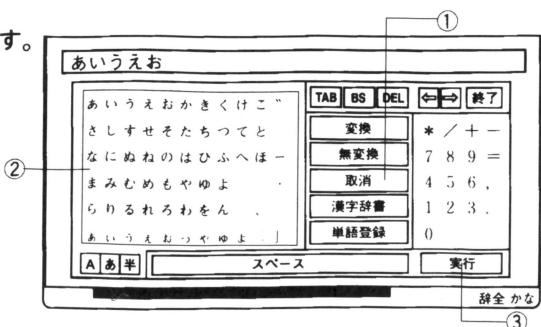 す。
①
あいうえお
TAB BS DEL ⇦ ⇨ 終了
あいうえおかきくけこ゛
さしすせそたちつてと
なにぬねのはひふへほー
まみむめもやゆよ ・
らりるれろわをん 、
ぁぃぅぇぉっゃゅょ.」
変換
無変換
取消
漢字辞書
単語登録
* / + -
7 8 9 =
4 5 6 ,
1 2 3 .
0
②
A あ 半 スペース 実行
辞全 かな
③